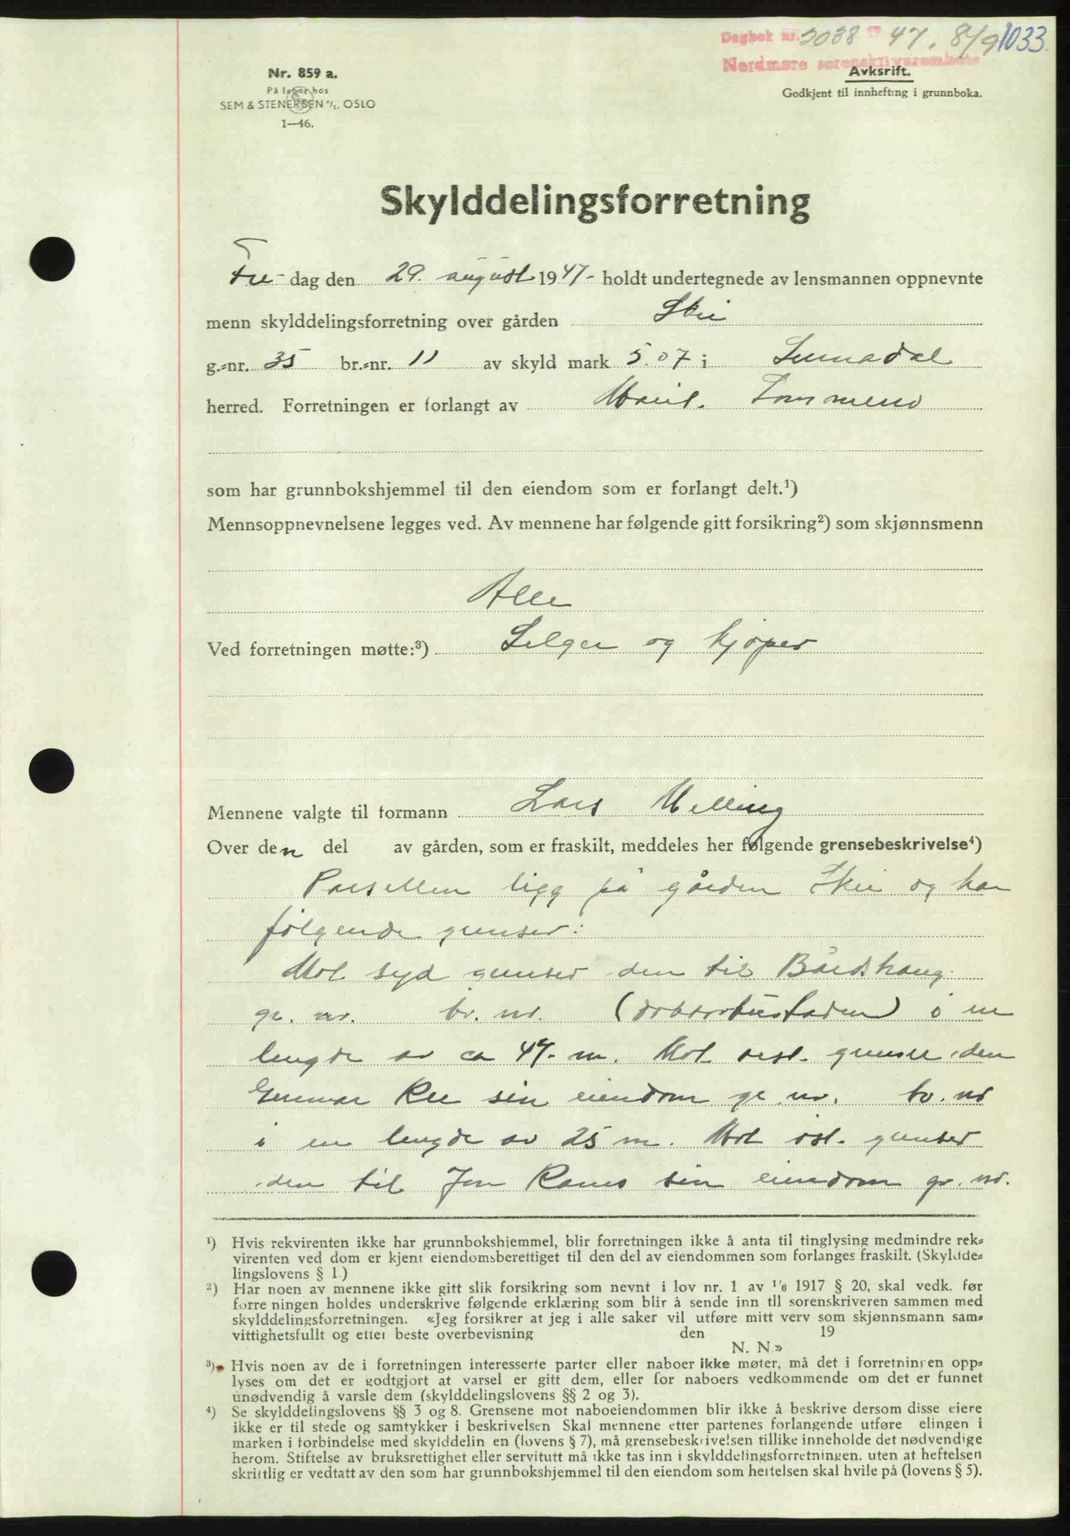 Dagbok nr. 2038 19 47. 8/9 1033
Nordmøre sorenskriverembete
Nr. 859 a.
På lager hos
SEM & STENERSEN A/S, OSLO
1—46.
Avksrift.
Godkjent til innhefting i grunnboka.
Skylddelingsforretning
Fre- dag den 29. august 1947- holdt undertegnede av lensmannen oppnevnte
menn skylddelingsforretning over gården Skei
g.-nr. 35 br.-nr. 11 av skyld mark 5.07 i Surnadal
herred. Forretningen er forlangt av Marit.
som har grunnbokshjemmel til den eiendom som er forlangt delt.¹)
Mennsoppnevnelsene legges ved. Av mennene har følgende gitt forsikring²) som skjønnsmenn
Alle
Ved forretningen møtte:³) Selger og kjøper
Mennene valgte til formann Lars Melling
Over den del av gården, som er fraskilt, meddeles her følgende grensebeskrivelse⁴)
Parsellen ligg på gården Skei og har
følgende grenser:
Mot syd grenser den til Bårdshaug
gr. nr. br. nr. (doktorbustaden) i en
lengde av ca 47- m. Mot vest- grenser den
Gunnar Ree sin eiendom gr. nr. br. nr
i en lengde av 25 m. Mot øst- grenser
den til Jon Ranes sin eiendom gr. nr.
¹) Hvis rekvirenten ikke har grunnbokshjemmel, blir forretningen ikke å anta til tinglysing medmindre rek-
virenten ved dom er kjent eiendomsberettiget til den del av eiendommen som forlanges fraskilt. (Skyldde-
lingslovens § 1.)
²) Har noen av mennene ikke gitt slik forsikring som nevnt i lov nr. 1 av 1/6 1917 § 20, skal vedk. før
forretningen holdes underskrive følgende erklæring som blir å sende inn til sorenskriveren sammen med
skylddelingsforretningen. «Jeg forsikrer at jeg i alle saker vil utføre mitt verv som skjønnsmann sam-
vittighetsfullt og etter beste overbevisning den 19
N. N.»
³) Hvis noen av de i forretningen interesserte parter eller naboer ikke møter, må det i forretningen opp-
lyses om det er godtgjort at varsel er gitt dem, eller for naboers vedkommende om det er funnet
unødvendig å varsle dem (skylddelingslovens §§ 2 og 3).
⁴) Se skylddelingslovens §§ 3 og 8. Grensene mot naboeiendommen blir ikke å beskrive dersom disse eiere
ikke er til stede og samtykker i beskrivelsen Skal mennene etter partenes forlangende utføre elingen i
marken i forbindelse med skylddelin en (lovens § 7), må grensebeskrivelsen tillike inneholde det nødvendige
herom. Stiftelse av bruksrettighet eller servitutt må ikke tas inn i skylddelingsforretningen. uten at heftelsen
skriftlig er vedtatt av den som har grunnbokshjemmel til den eiendom som heftelsen skal hvile på (lovens § 5).